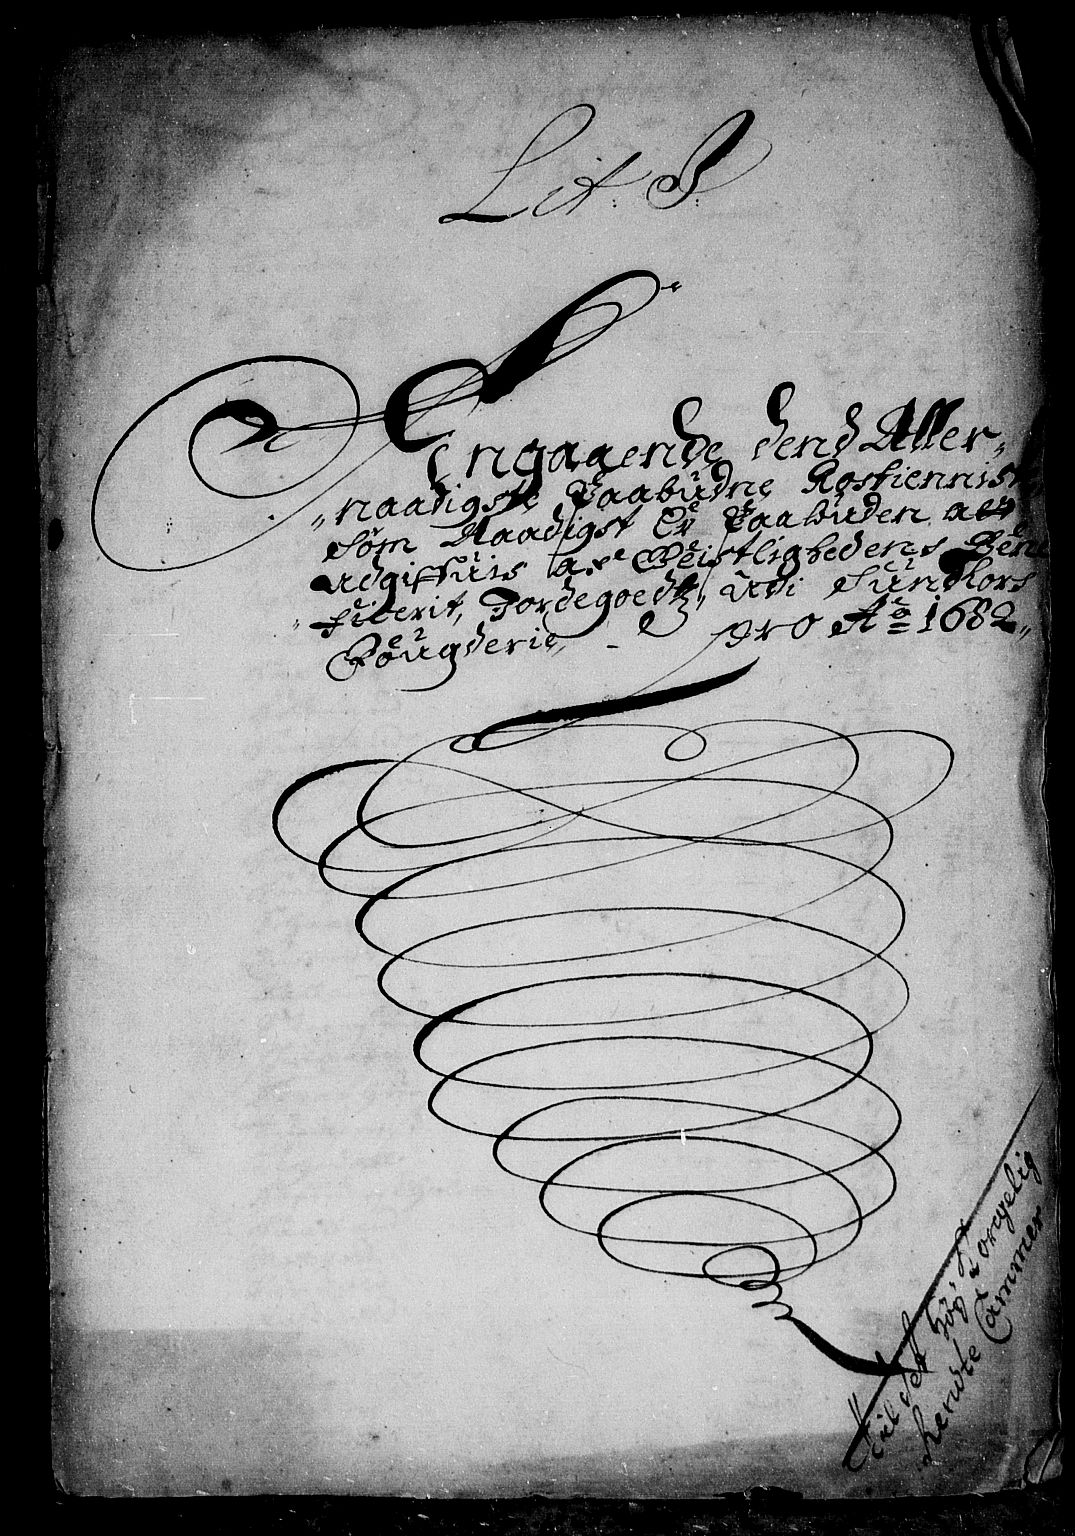 Lit. J:
Angaaende dend Aller„
„naadigste Paabudne Rostienniste
som Naadigst Er Paabuden att
udgiffuis af Geistlighedens Bene„
„ficerit, Jordegoedtz, udi Sundhors
Fougderie, - pro Ao 1682„
Till det høy Kongelig
Rendte Cammer